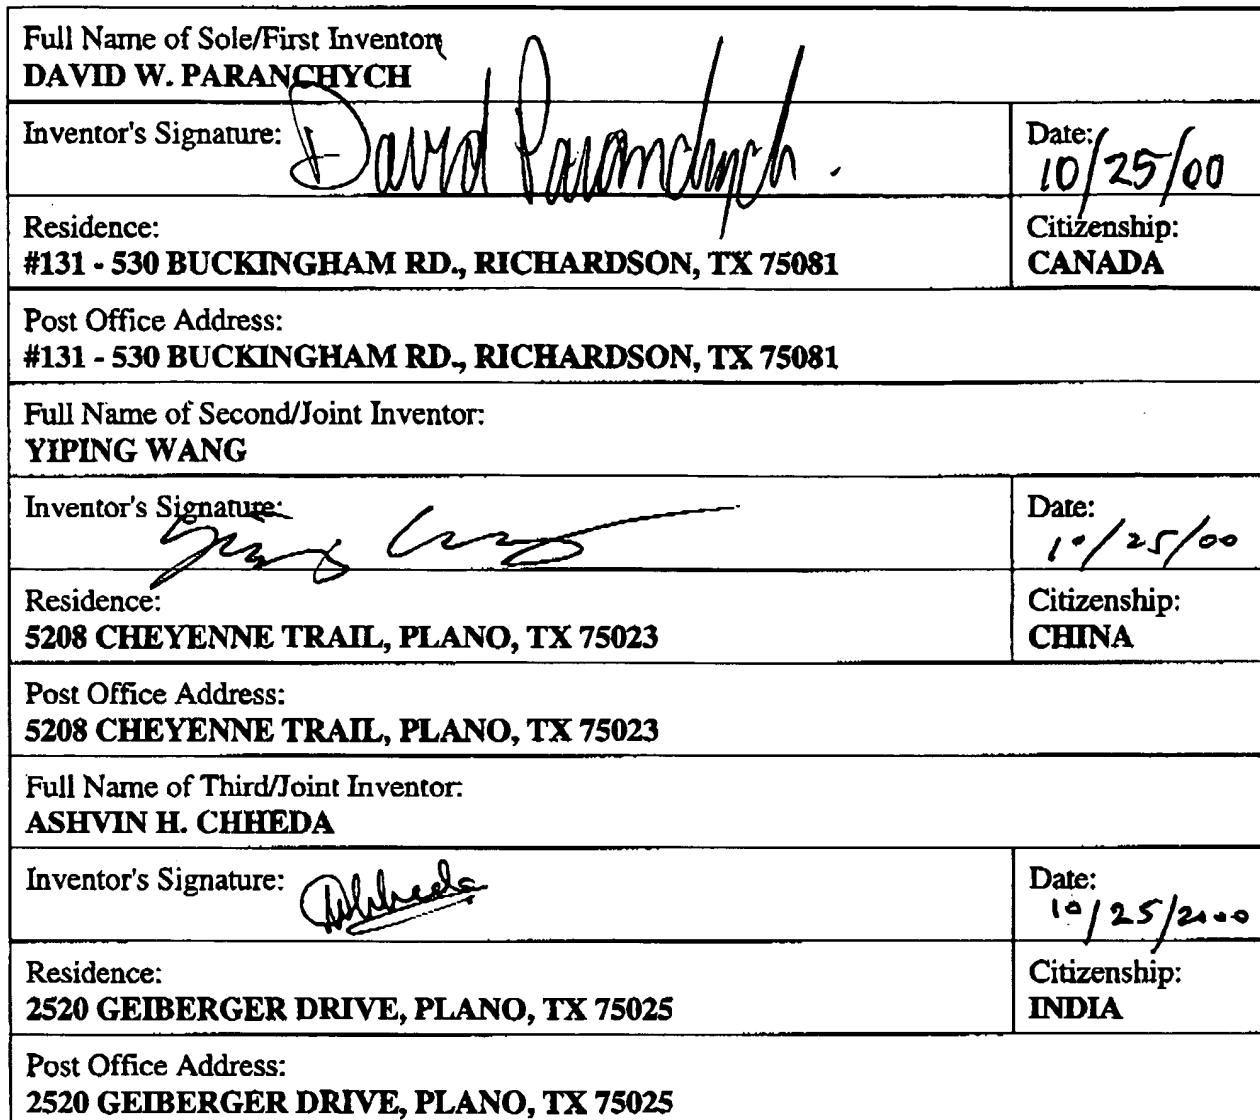 Full Name of Sole/First Inventor
DAVID W. PARANCHYCH
Inventor's Signature: David Paranchych.
Date: 10/25/00
Residence:
#131 - 530 BUCKINGHAM RD., RICHARDSON, TX 75081
Citizenship:
CANADA
Post Office Address:
#131 - 530 BUCKINGHAM RD., RICHARDSON, TX 75081
Full Name of Second/Joint Inventor:
YIPING WANG
Inventor's Signature:
Date:
10/25/00
Residence:
5208 CHEYENNE TRAIL, PLANO, TX 75023
Citizenship:
CHINA
Post Office Address:
5208 CHEYENNE TRAIL, PLANO, TX 75023
Full Name of Third/Joint Inventor:
ASHVIN H. CHHEDA
Inventor's Signature:
Date:
10/25/2000
Residence:
2520 GEIBERGER DRIVE, PLANO, TX 75025
Citizenship:
INDIA
Post Office Address:
2520 GEIBERGER DRIVE, PLANO, TX 75025